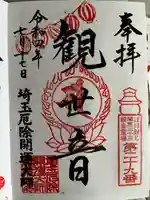 奉拝
第二十九番
観世音
令和四年
七月十七日
埼玉厄除開運大師